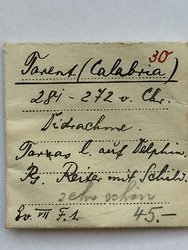 30
Tarent (Calabria)
281-272 v. Chr.
Didrachme.
Tarzas l. auf Delphin.
Rs. Reiter mit Schild.
sehr schön
Ev. VII F.1 45.—